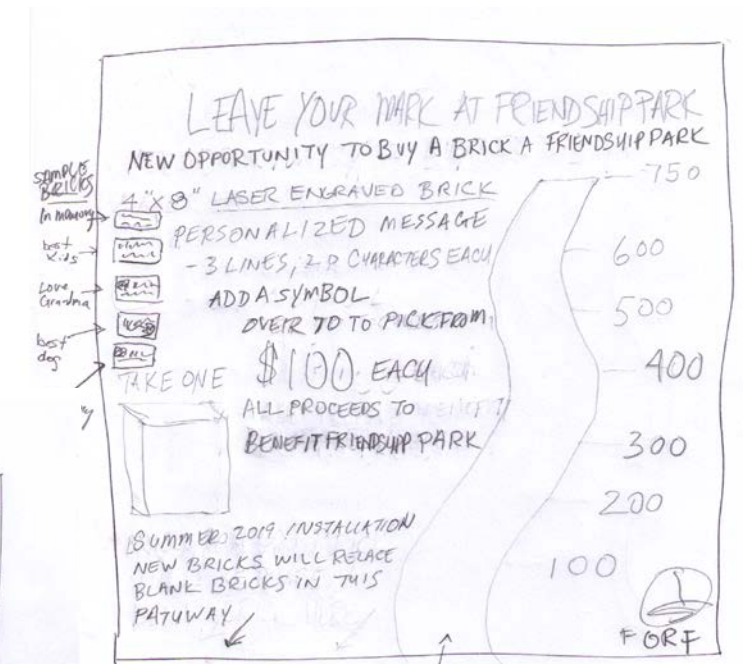 LEAVE YOUR MARK AT FRIENDSHIP PARK
NEW OPPORTUNITY TO BUY A BRICK A FRIENDSHIP PARK
SAMPLE
BRICKS
In memory
best
kids
Love
Grandma
best
dog
4"x8" LASER ENGRAVED BRICK
PERSONALIZED MESSAGE
- 3 LINES, CHARACTERS EACH
ADD A SYMBOL
OVER 70 TO PICK FROM
$100 EACH
TAKE ONE
ALL PROCEEDS TO
BENEFIT FRIENDSHIP PARK
SUMMER 2019 INSTALLATION
NEW BRICKS WILL RELACE
BLANK BRICKS IN THIS
PATHWAY
750
600
500
400
300
200
100
FORF